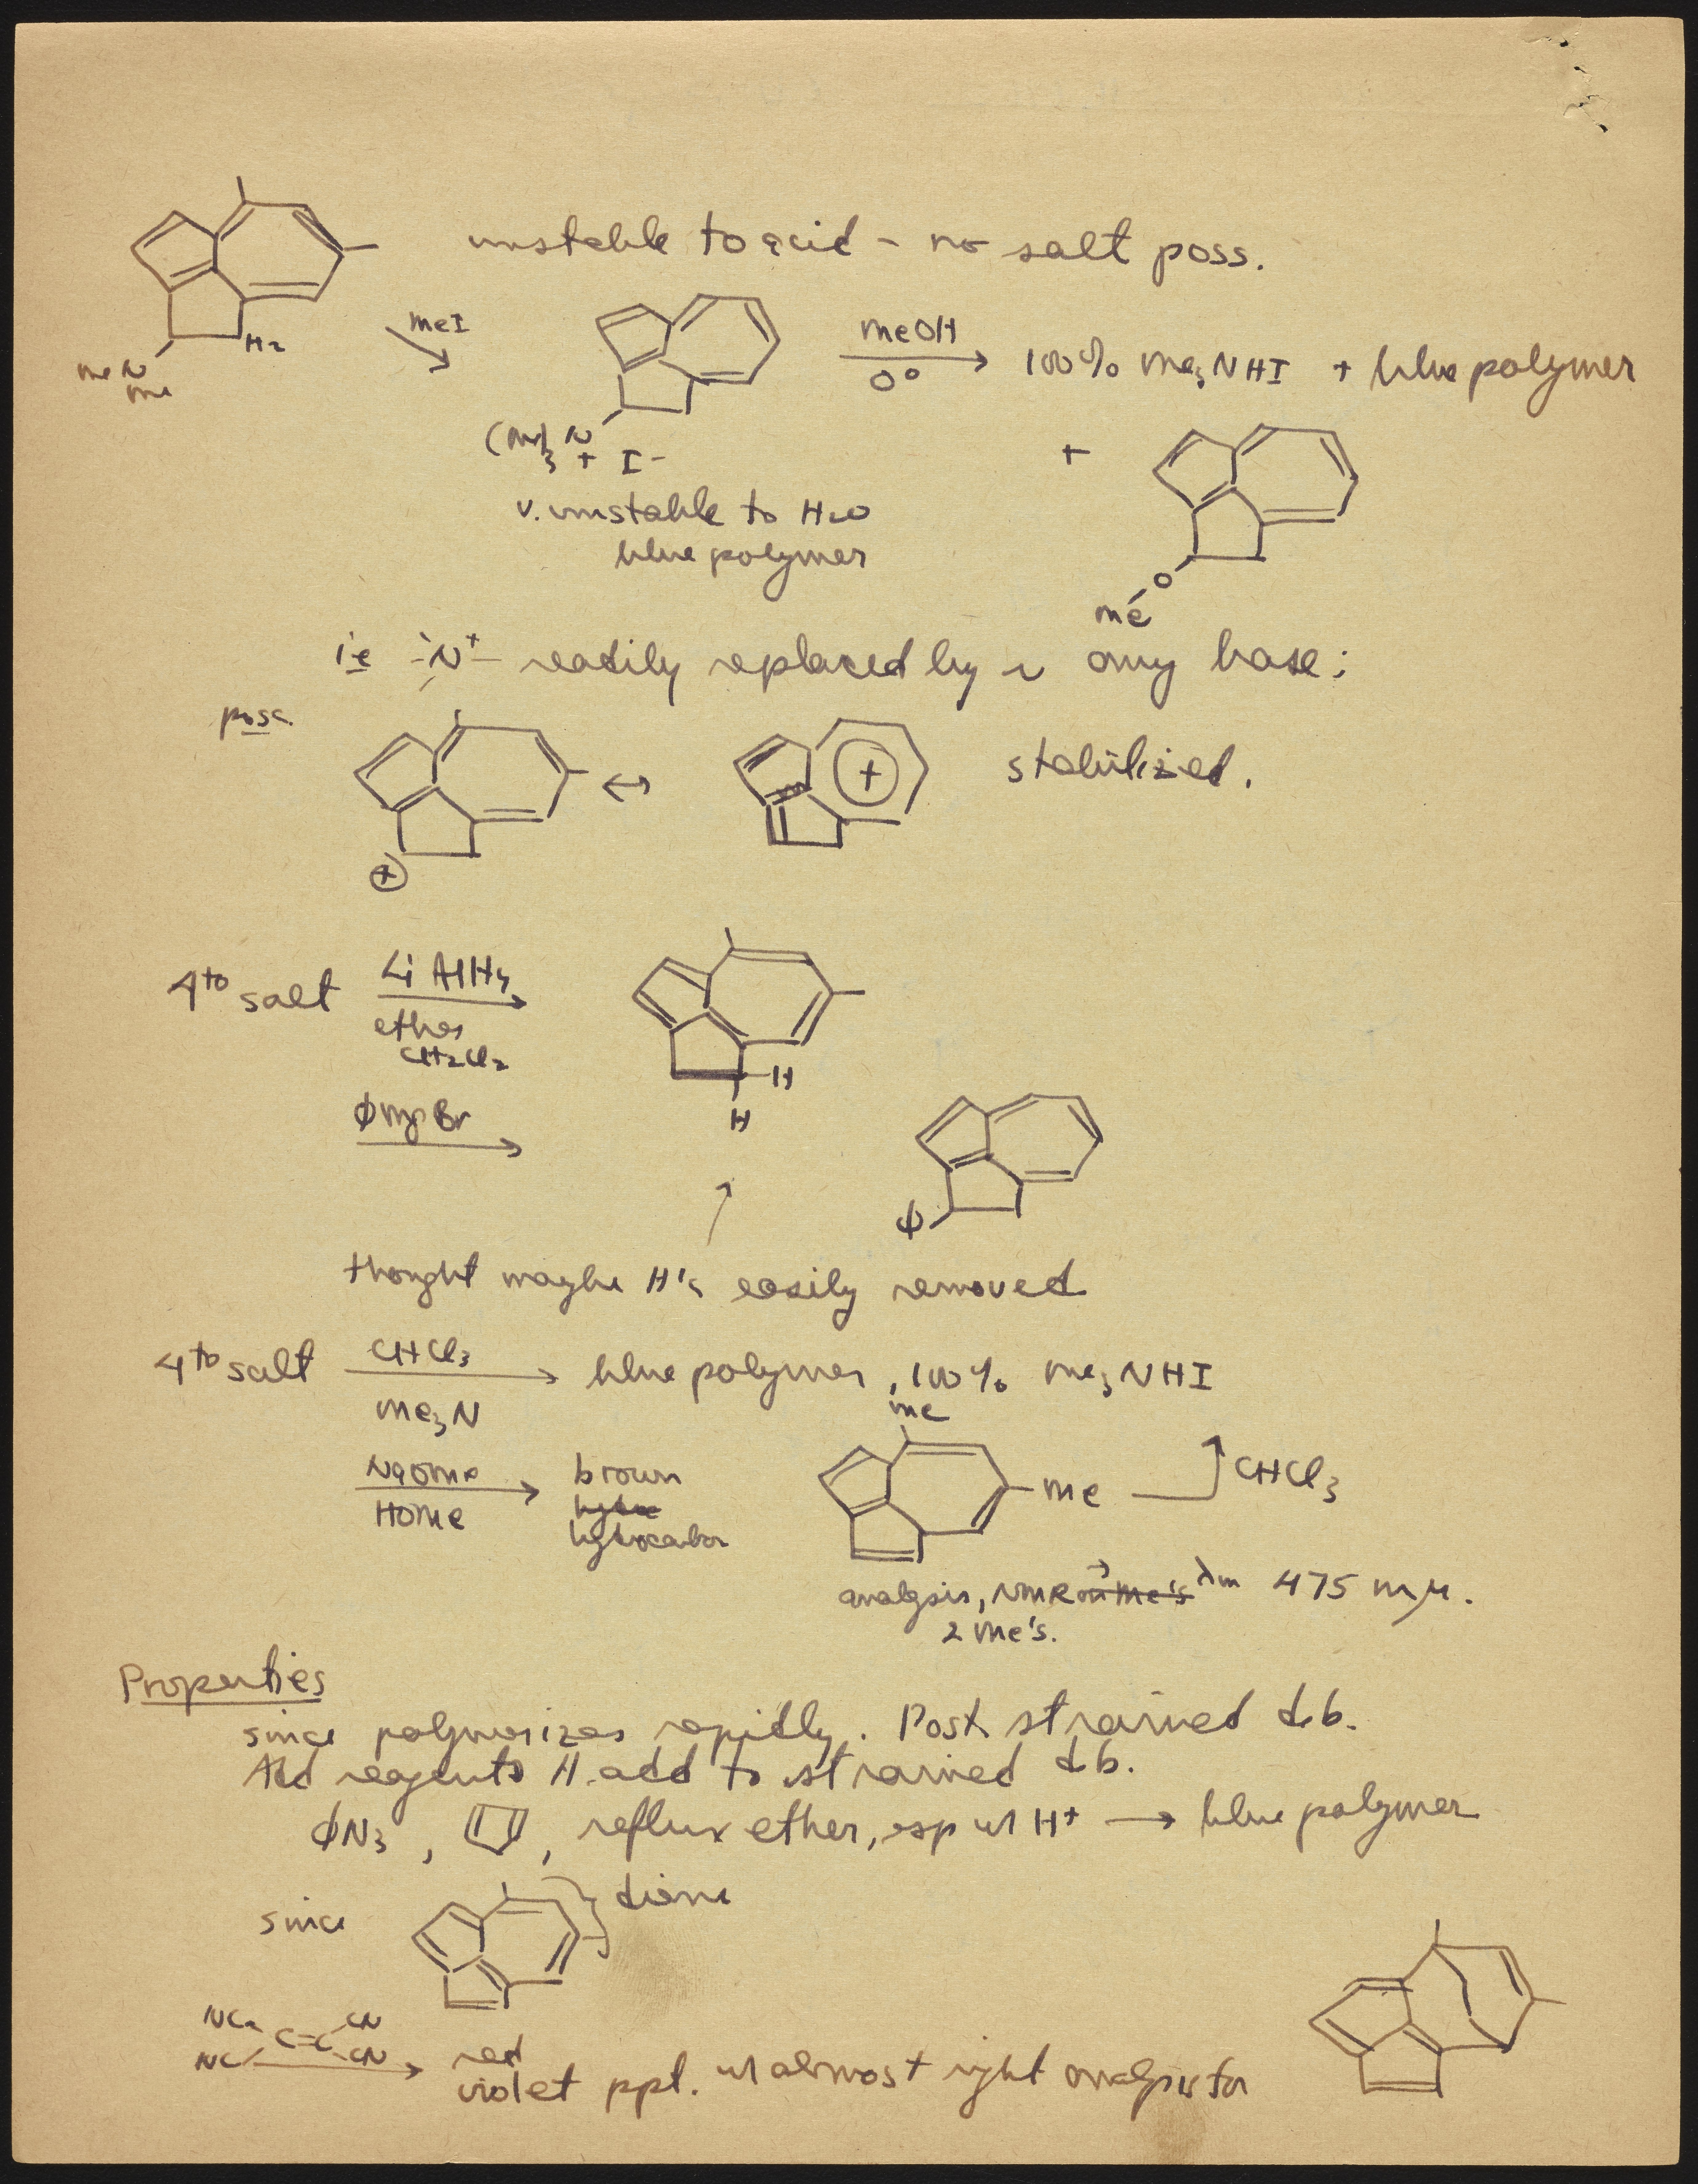 unstable to acid - no salt poss.
H2
Me N
Me
MeI
MeOH
0°
100% Me3NHI + blue polymer
(Me)3 N
+ I-
+
v. unstable to H2O
blue polymer
O
Me
ie -N+- readily replaced by any base:
poss.
+
↔
+
stabilized.
4to salt
LiAlH4
ether
CH2Cl2
H
H
ϕMgBr
ϕ
thought maybe H's easily removed
4to salt
CHCl3
Me3N
blue polymer, 100% Me3NHI
Me
NaOMe
HOMe
brown
hydrocarbon
Me
CHCl3
analysis, NMR λm 475 mμ.
2 Me's.
Properties
since polymerizes rapidly. Poss strained d.b.
Add reagents H. add to strained d.b.
ϕN3, , reflux ether, esp w H+ → blue polymer
since
diene
NC C=C CN
NC CN
red
violet ppt. w almost right analysis for